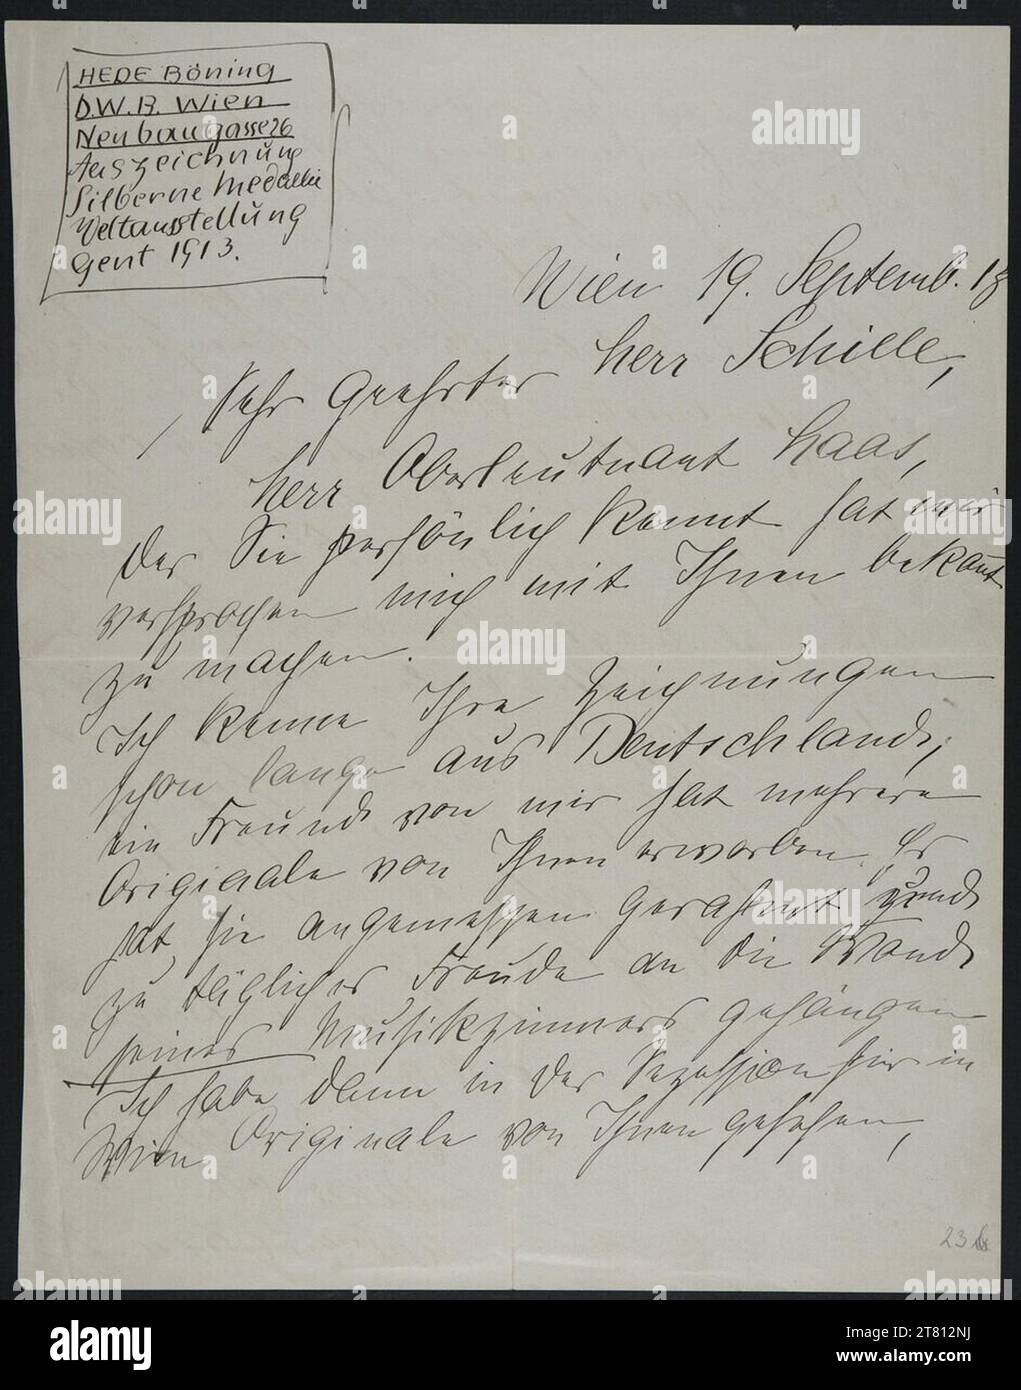 HEDE Böning
D.W.B. Wien
Neubaugasse 26
Auszeichnung
Silberne Medaille
Weltausstellung
Gent 1913.
Wien 19. Septemb. 18
Sehr Geehrter Herr Schiele,
Herr Oberleutnant Haas,
der Sie persönlich kennt hat mir
versprochen mich mit Ihnen bekannt
zu machen.
Ich kenne Ihre Zeichnungen
schon lange aus Deutschland,
ein Freund von mir hat mehrere
Originale von Ihnen erworben. Er
hat sie angemessen gerahmt und
zu täglicher Freude an die Wand
seines Musikzimmers gehängen
Ich habe dann in der Sezession hier in
Wien Originale von Ihnen gesehen,
23
alamy
Image ID: 2T812NJ
www.alamy.com